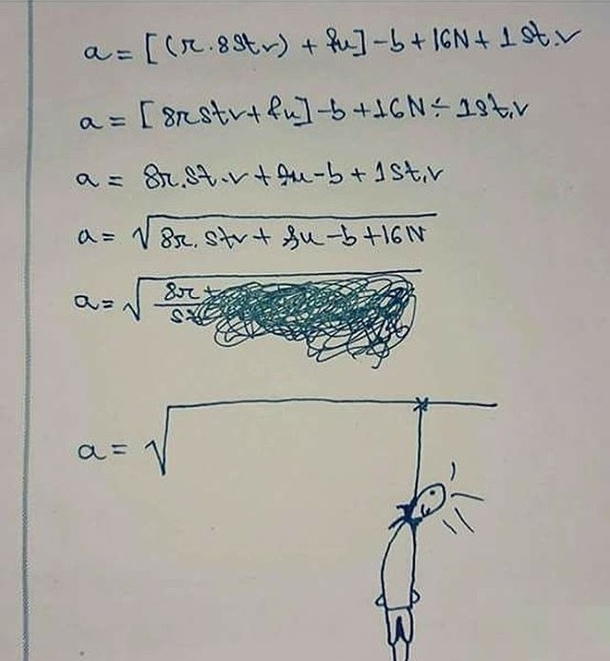 a = [(r.8st v) + fu] - b + 16N + 1 st.v
a = [8rstv + fu] - b + 16N ÷ 1st.v
a = 8r.st.v + fu - b + 1st.v
a = √8r.stv + fu - b + 16N
a = √8r + st
a = √